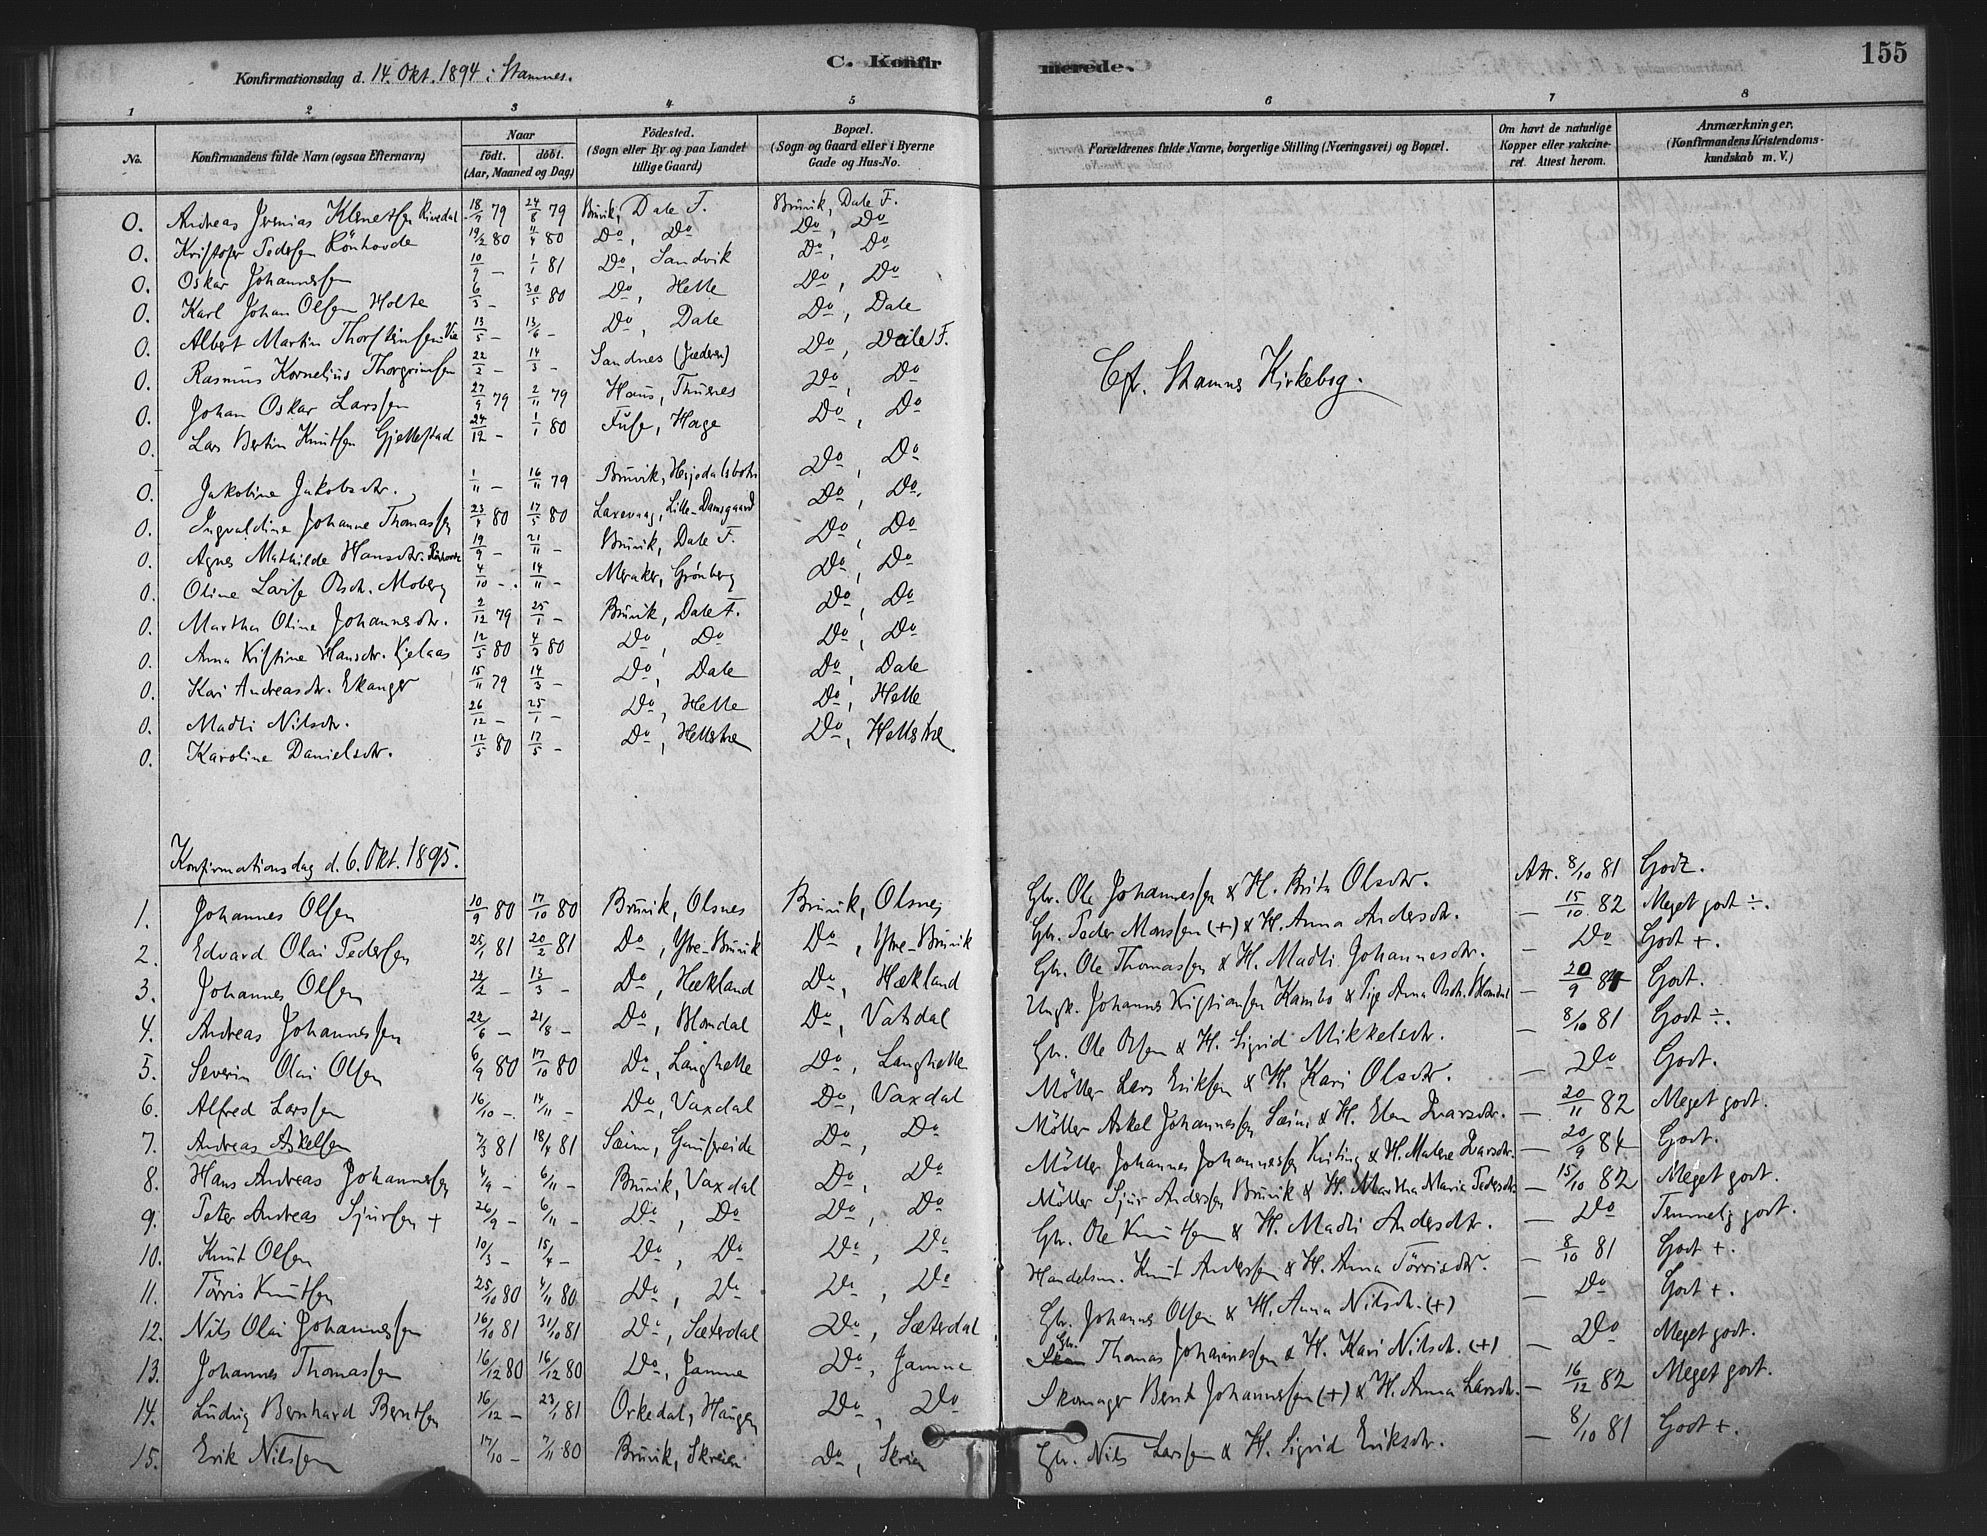 C. Konfirmerede.
155
Konfirmationsdag d. 14. Okt. 1894 i Stamnes.
1 2 3 4 5 6 7 8
No.
Konfirmandens fulde Navn (ogsaa Efternavn)
Naar
födt. döbt.
(Aar, Maaned og Dag)
Födested.
(Sogn eller By og paa Landet
tillige Gaard)
Bopæl.
(Sogn og Gaard eller i Byerne
Gade og Hus-No.
Forældrenes fulde Navne, borgerlige Stilling (Næringsvei) og Bopæl.
Om havt de naturlige
Kopper eller vakcine-
ret. Attest herom.
Anmærkninger.
(Konfirmandens Kristendoms-
kundskab m. V.)
0. Andreas Jremias Klenetsen Rivedal 18/7 79 24/8 79 Bruvik, Dale F. Bruvik, Dale F.
0. Kristofer Pedersen Rönhovde 19/2 80 4/4 80 Do, Do Do, Do
0. Oskar Johannessen 10/9 – 1/1 81 Do, Sandvik Do, Do
0. Karl Johan Olsen Holte 6/3 – 30/5 80 Do, Helle Do, Do
0. Albert Martin Thorsteinsen Vik 13/5 – 13/6 – Do, Dale Do, Dale
0. Rasmus Kornelius Thorgrimsen 22/2 – 14/3 – Sandnes (Jæderen) Do, Dale F.
0. Johan Oskar Larssen 27/9 79 2/11 79 Haus, Thunes Do, Do
0. Lars Bertin Knutsen Gjellestad 24/12 – 1/1 80 Fuse, Hage Do, Do
0. Jakobine Jakobsdtr. 1/11 – 16/11 79 Bruvik, Do, Do
0. Ingvaldine Johanne Thomassen 23/1 80 17/5 80 Laxevaag, Lille-Damsgaard Do, Do
0. Agnes Mathilde Hansdtr. 19/9 – 21/11 – Bruvik, Dale F. Do, Do
0. Oline Lovise Olsdt. Moberg 4/10 – 14/11 – Meraker, Grönberg Do, Do
0. Martha Oline Johannesdtr. 2/12 79 25/1 – Bruvik, Dale F. Do, Do
0. Anna Kristine Hansdtr. Kjelaas 12/5 80 4/7 80 Do, Do Do, Do
0. Kari Andreasdtr. Ekanger 15/11 79 14/3 – Do, Dale Do, Dale
0. Madli Nilsdtr. 26/12 – 25/1 – Do, Helle Do, Helle
0. Karoline Danielsdtr. 12/5 80 17/5 – Do, Hellstræ Do, Hellstræ
Cfr. Stamnes Kirkebog.
Konfirmationsdag d. 6. Okt. 1895.
1. Johannes Olsen 10/9 80 17/10 80 Bruvik, Olsnes Bruvik, Olsnes Gbr. Ole Johannessen & H. Brita Olsdtr. Att. 8/10 81 Godt.
2. Edvard Olai Pedersen 25/1 81 20/2 81 Do, Ytre-Bruvik Do, Ytre-Bruvik Gbr. Peder Monssen (+) & H. Anna Andersdtr. – 15/10 82 Meget godt ÷.
3. Johannes Olsen 22/2 – 13/3 – Do, Hækland Do, Hækland Gbr. Ole Thomassen & H. Madli Johannesdtr. – Do Godt +.
4. Andreas Johannessen 22/6 – 21/8 – Do, Blomdal Do, Vatsdal Ungk. Johannes Kristiansen Kambo & Pige Anna Olsdt. Blomdal – 20/9 84 Godt.
5. Severin Olai Olsen 6/9 80 17/10 80 Do, Langhelle Do, Langhelle Gbr. Ole Olsen & H. Sigrid Mikkelsdtr. – 8/10 81 Godt ÷.
6. Alfred Larssen 16/10 – 14/11 – Do, Vaxdal Do, Vaxdal Möller Lars Eriksen & H. Kari Olsdtr. – Do Godt.
7. Andreas Askelsen 7/3 81 18/4 81 Sæim, Do, Do Möller Askel Johannessen Sæim & H. Elen Ivarsdtr. – 20/11 82 Meget godt.
8. Hans Andreas Johannessen 4/9 – 6/11 – Bruvik, Vaxdal Do, Do Möller Johannes Johannessen & H. Malene Ivarsdtr. – 20/9 84 Godt.
9. Peter Andreas Sjursen + 26/9 – 6/11 – Do, Do Do, Do Möller Sjur Andersen Bruvik & H. Martha Maria Pedersdtr – 15/10 82 Meget godt.
10. Knut Olsen 10/3 – 15/4 – Do, Do Do, Do Gbr. Ole Knutsen & H. Madli Andersdtr. – Do Temmelig godt.
11. Törris Knutsen 25/10 80 4/11 80 Do, Do Do, Do Handelsm. Knut Andersen & H. Anna Törrisdtr. – 8/10 81 Godt +.
12. Nils Olai Johannessen 16/10 81 31/10 81 Do, Sæterdal Do, Sæterdal Gbr. Johannes Olsen & H. Anna Nilsdt. (+) – Do Godt +.
13. Johannes Thomassen 16/12 80 16/12 80 Do, Jamne Do, Jamne Gbr. Thomas Johannessen & H. Kari Nilsdt. (+) – Do Meget godt.
14. Ludvig Bernhard Berntsen 16/12 – 23/1 81 Orkedal, Haugen Do, Do Skomager Bernt Johannessen (+) & H. Anna Larsdt. – 16/12 82 Meget godt.
15. Erik Nilssen 17/10 – 7/11 80 Bruvik, Skreien Do, Skreien Gbr. Nils Larssen & H. Sigrid Eriksdtr. – 8/10 81 Godt +.